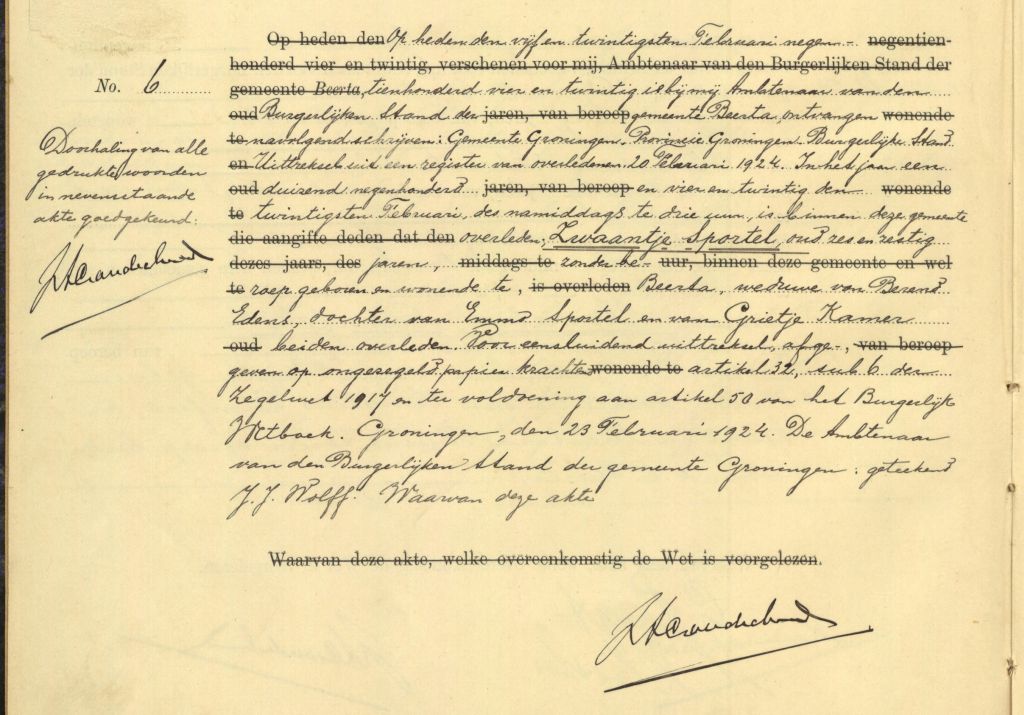 Op heden den Op heden den vijf en twintigsten Februari negen- negentien-
honderd vier en twintig, verschenen voor mij, Ambtenaar van den Burgerlijken Stand der
No. 6
gemeente Beerta, tienhonderd vier en twintig is bij mij Ambtenaar van den
oud Burgerlijken Stand der jaren, van beroep gemeente Beerta, ontvangen wonende
te navolgend schrijven: Gemeente Groningen. Provincie Groningen. Burgerlijke Stand
en Uittreksel uit een register van overledenen. 20 Februari 1924. In het jaar een
oud duizend negenhonderd jaren, van beroep en vier en twintig den wonende
te twintigsten Februari, des namiddags te drie uur, is binnen deze gemeente
die aangifte deden dat den overleden, Zwaantje Sportel, oud zes en zestig
dezes jaars, des jaren, middags te zonder be- uur, binnen deze gemeente en wel
te roep geboren en wonende te, is overleden Beerta, weduwe van Berend
Edens, dochter van Emmo Sportel en van Grietje Kamer
oud beiden overleden. Voor eensluidend uittreksel, afge-, van beroep
geven op ongezegeld papier krachtens wonende te artikel 32, sub 6 der
Zegelwet 1917 en ter voldoening aan artikel 50 van het Burgerlijk
Wetboek. Groningen, den 23 Februari 1924. De Ambtenaar
van den Burgerlijken Stand der gemeente Groningen: geteekend
J. J. Wolff. Waarvan deze akte
Waarvan deze akte, welke overeenkomstig de Wet is voorgelezen.
Doorhaling van alle
gedrukte woorden
in nevenstaande
akte goedgekeurd: